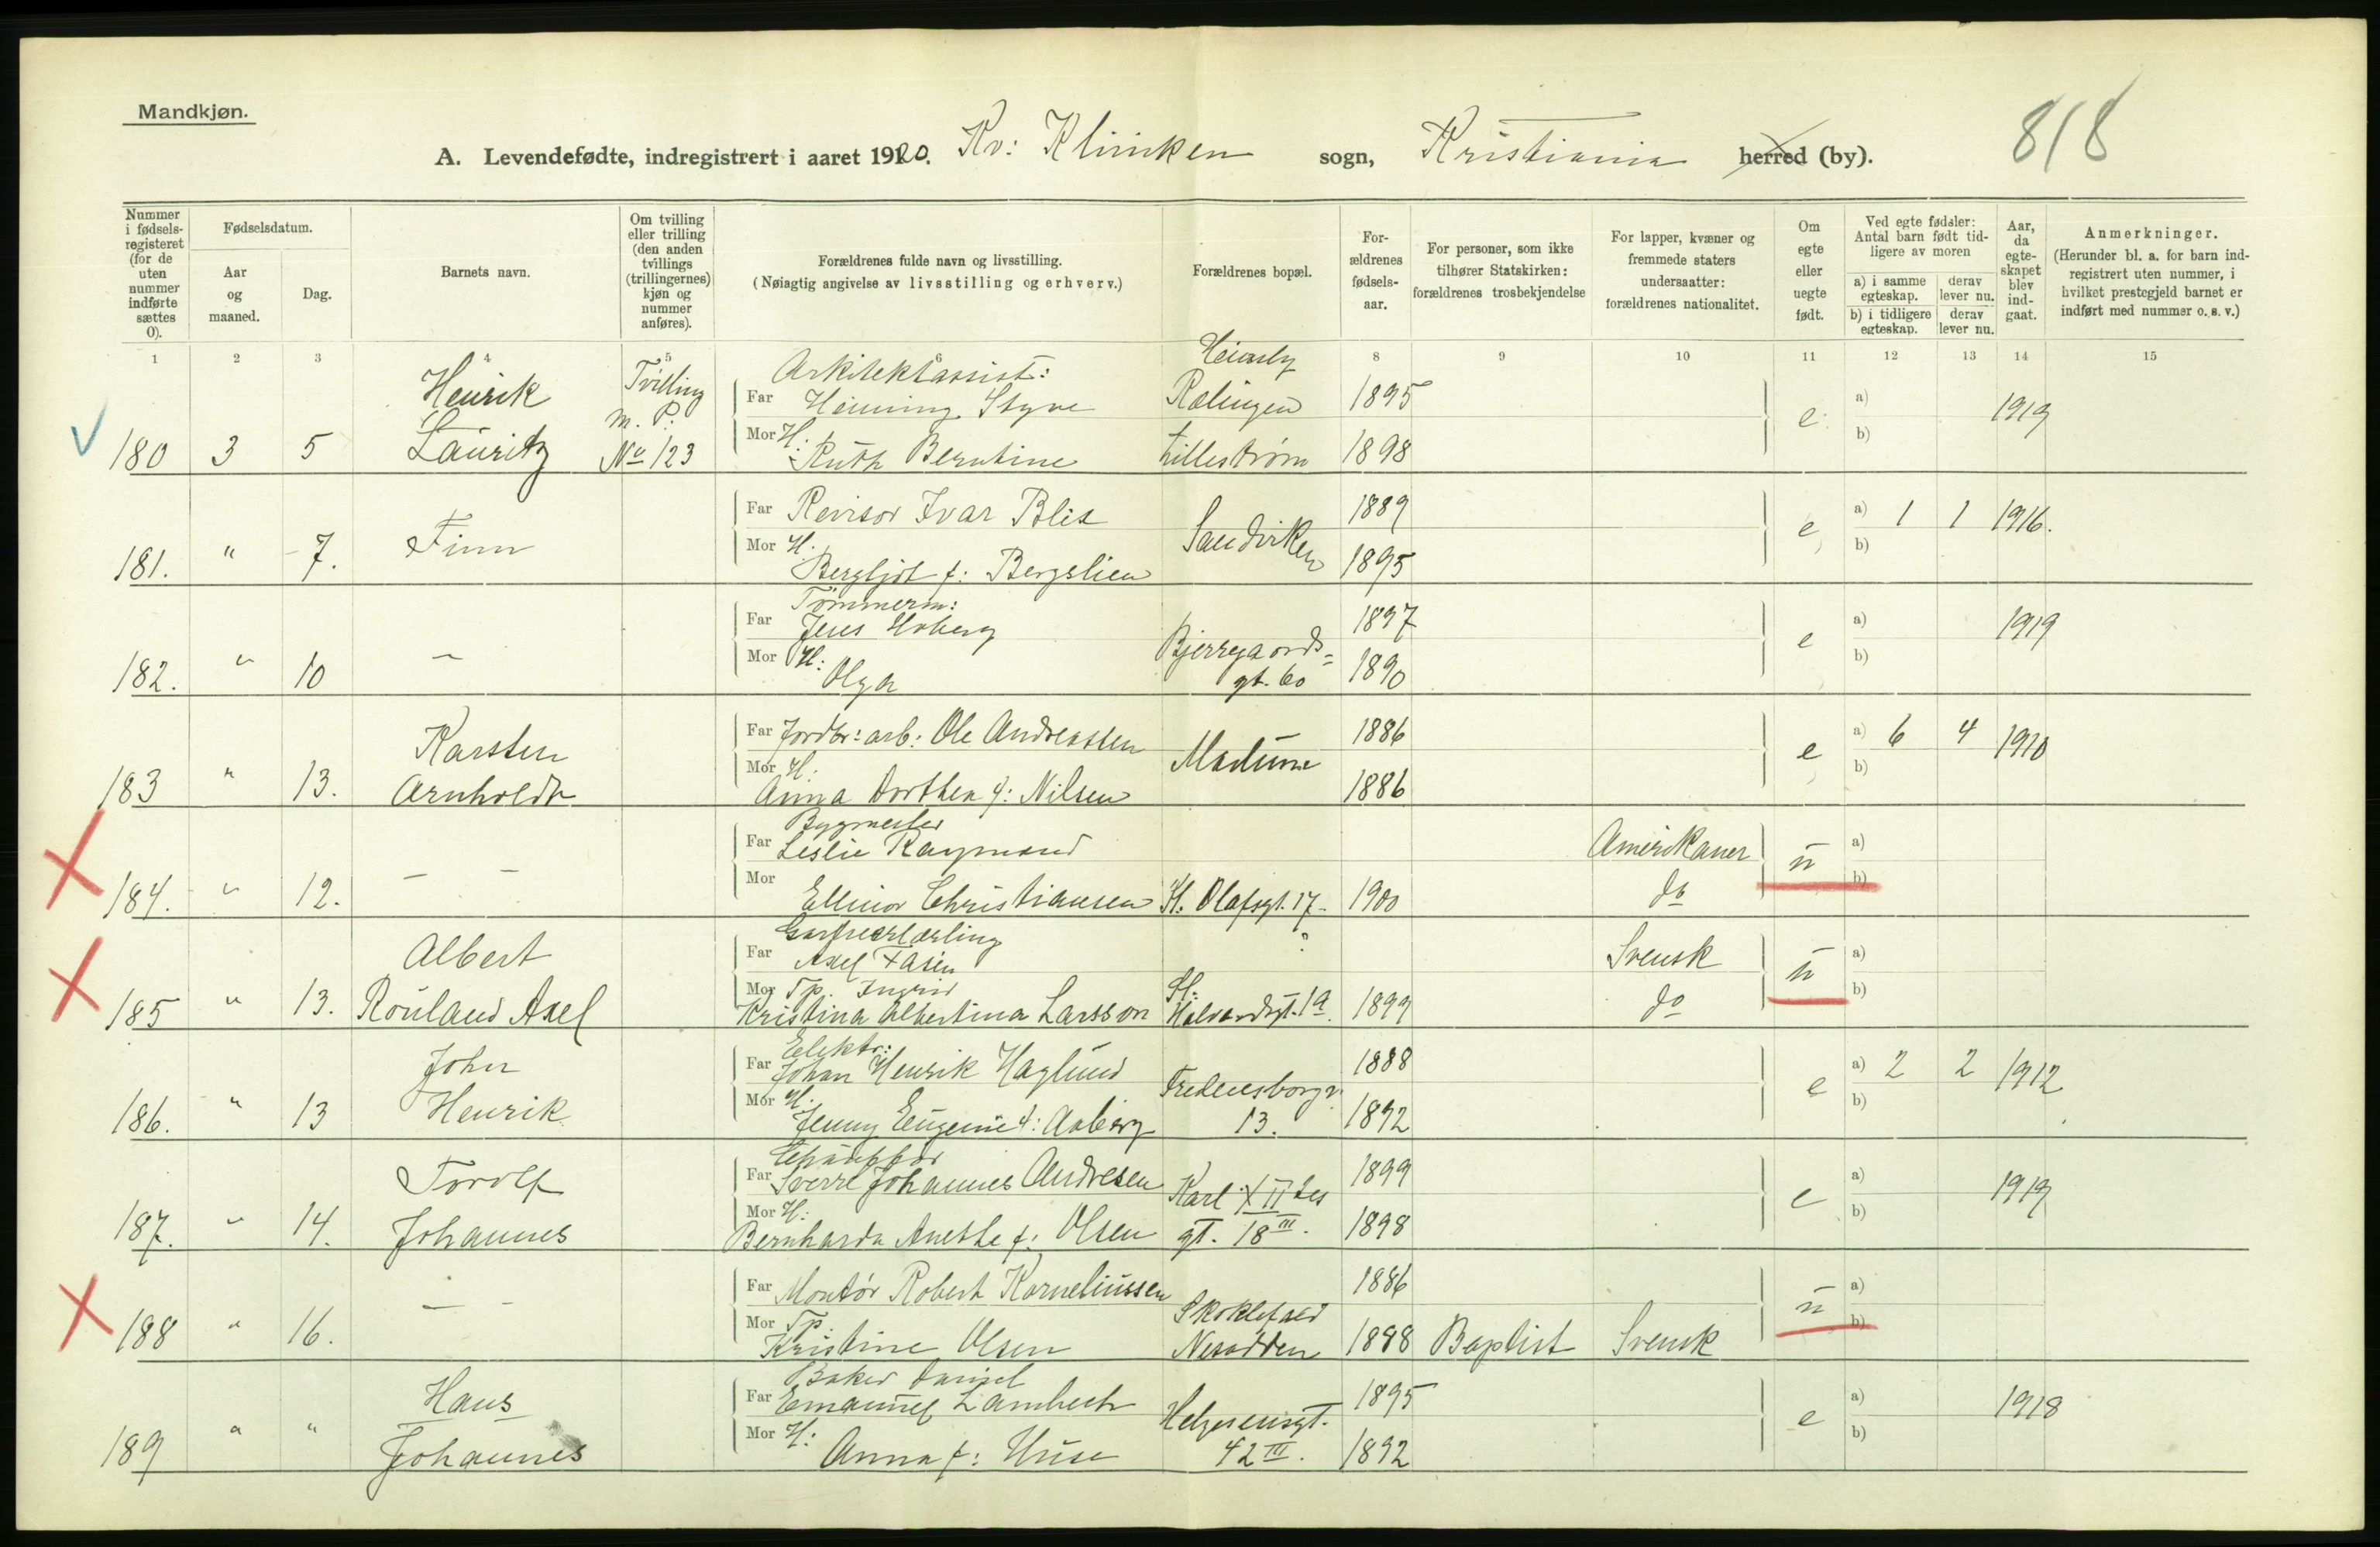 Mandkjøn.
818
A. Levendefødte, indregistrert i aaret 1920. Kv: Klinikken sogn, Kristiania herred (by).
Nummer i fødselsregisteret (for de uten nummer indførte sættes 0).
Fødselsdatum.
Aar og maaned.
Dag.
Barnets navn.
Om tvilling eller trilling (den anden tvillings (trillingernes) kjøn og nummer anføres).
Forældrenes fulde navn og livsstilling.
(Nøiagtig angivelse av livsstilling og erhverv.)
Forældrenes bopæl.
For-ældrenes fødsels-aar.
For personer, som ikke tilhører Statskirken: forældrenes trosbekjendelse
For lapper, kvæner og fremmede staters undersaatter: forældrenes nationalitet.
Om egte eller uegte født.
Ved egte fødsler: Antal barn født tid-ligere av moren
a) i samme egteskap. derav lever nu.
b) i tidligere egteskap. derav lever nu.
Aar, da egte-skapet blev ind-gaat.
Anmerkninger.
(Herunder bl. a. for barn ind-registrert uten nummer, i hvilket prestegjeld barnet er indført med nummer o. s. v.)
1 2 3 4 5 6 8 9 10 11 12 13 14 15
Henrik Tvilling Arkitektassist:
m. P. Far Henning Styve Rælingen 1895 e. a) 1919
180 3 5 Lauritz No 123 Mor H. Ruth Berntine Lillestrøm 1898 b)
Far Revisor Ivar Blix 1889 a) 1 1 1916.
181. " 7. Finn Mor H. Bergljot f: Bergslien Sandviken 1895 e b)
Tømmerm:
Far Jens Hoberg 1897 a) 1919
182. " 10 – Mor H: Olga Bjerregaards=gt. 60 1890 e b)
Karsten Far Jordbr: arb: Ole Andreassen 1886 a) 6 4 1910
183 " 13. Arnholdt Mor H. Anna Dorthea f: Nilsen 1886 e b)
Bygmester
Far Leslie Raymond Amerikaner a)
184. " 12. – – Mor Ellinor Christiansen St. Olafsgt. 17 1900 do u b)
Albert Far Axel Svensk a)
185 " 13. Rouland Axel Mor Tp. Ingrid Kristina Albertina Larsson St. Halvardsgt. 1a. 1899 do u b)
John Elektr:
Far Johan Henrik Haglund 1888 a) 2 2 1912
186. " 13 Henrik Mor H. Jenny Eugenie f: Aaberg Fredensborgv. 13. 1892 e b)
Torolf Chauffør
Far Sverre Johannes Andresen 1899 a) 1919
187. " 14. Johannes Mor H: Bernharda Anethe f: Olsen Karl XII tes gt. 18 III. 1898 e b)
Far Montør Robert Korneliussen 1886 a)
188 " 16. – – Mor Tp. Kristine Olsen Skoklefald Nesodden 1888 Baptist Svensk u b)
Hans Baker Daniel
Far Emanuel Lambech 1895 a) 1918
189 " " Johannes Mor H: Anna f: Huse Helgesensgt. 42 III. 1892 e b)